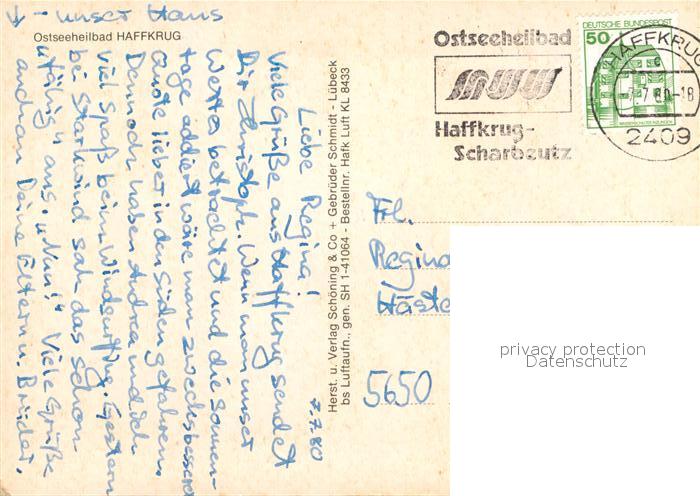 ↓ - unser Haus
Ostseeheilbad HAFFKRUG
7.7.80
Liebe Regina!
Viele Grüße aus Haffkrug sendet
Dir Christoph. Wenn man unser
Wetter betrachtet und die Sonnen-
tage addiert wäre man zwecks besserer
Quote lieber in den Süden gefahren.
Dennoch haben Andrea und ich
viel Spaß beim Windsurfing. Gestern
bei Starkwind sah das schon
ulkig aus. "Nun!" Viele Grüße
auch an Deine Eltern u. Brüder.
Herst. u. Verlag Schöning & Co + Gebrüder Schmidt - Lübeck
bs Luftaufn., gen. SH 1-41064 - Bestellnr. Hafk Luft KL 8433
Ostseeheilbad
Haffkrug-
Scharbeutz
DEUTSCHE BUNDESPOST
50
HAFFKRUG
c
7.80-18
2409
Frl.
Regina
Häste
5650
privacy protection
Datenschutz